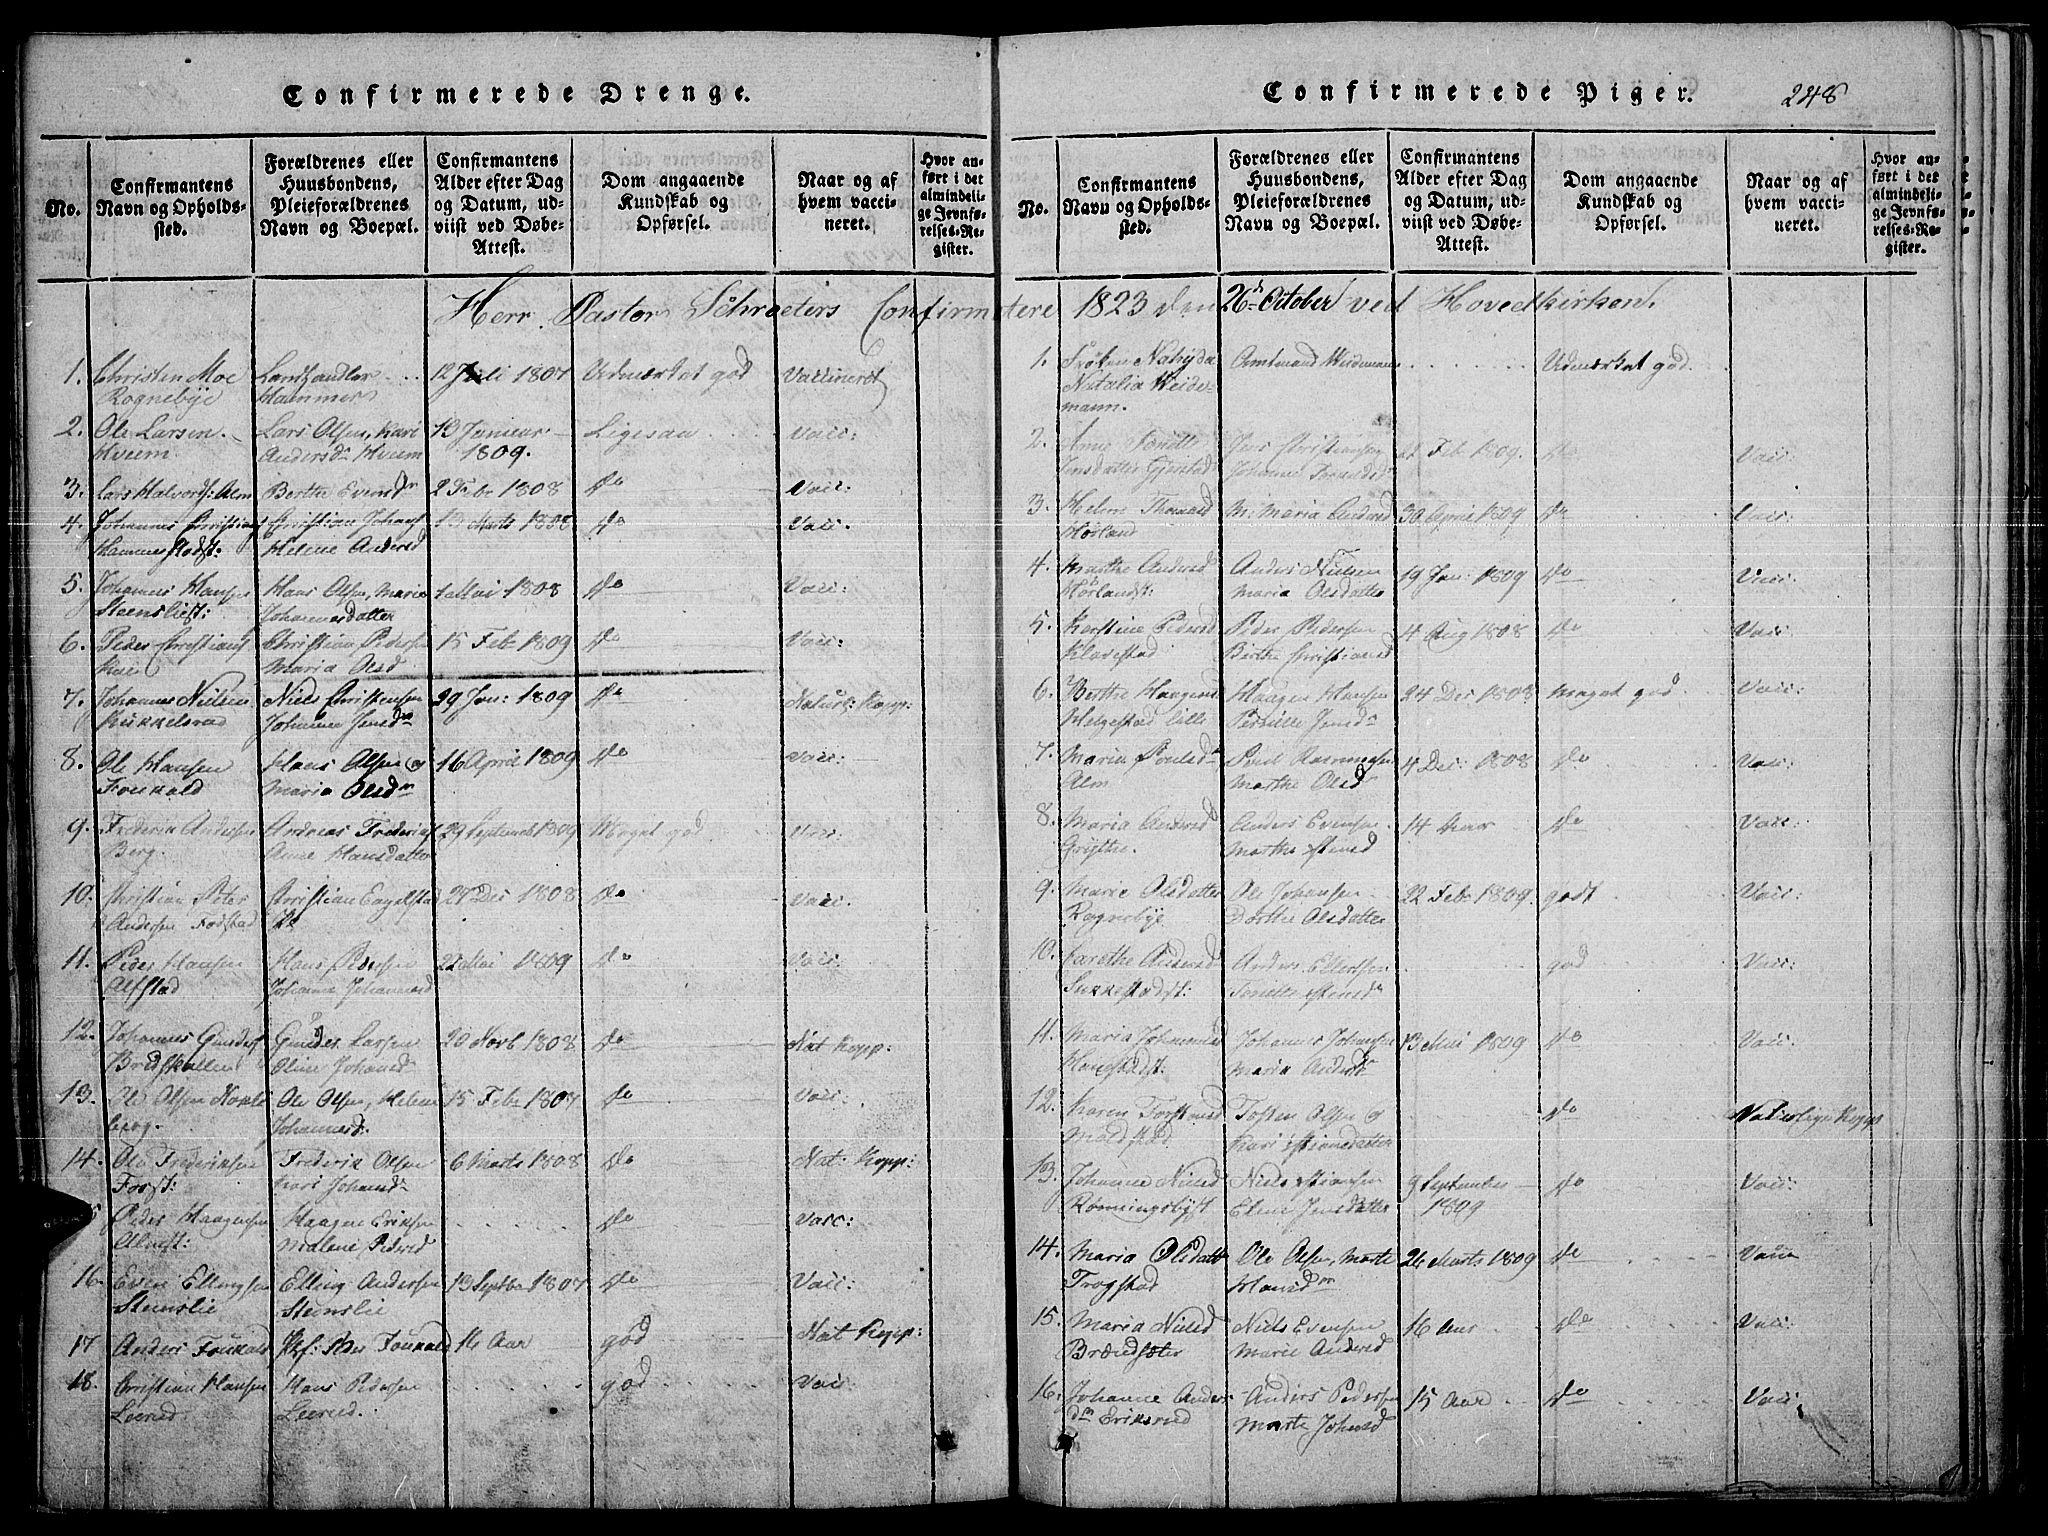 Confirmerede Drenge.
No.
Confirmantens Navn og Opholdssted.
Forældrenes eller Huusbondens, Pleieforældrenes Navn og Boepæl.
Confirmantens Alder efter Dag og Datum, udviist ved Døbe-Attest.
Dom angaaende Kundskab og Opførsel.
Naar og af hvem vaccineret.
Hvor anført i det almindelige Jevnførelses-Register.
Herr Pastor Schroeters Confirmatere 1823 den 26de October ved Hovedkirken.
1. Christen Moe Landhandler 12 Juli 1807 Udmærket god Vaccineret
Rognebye Hammer
2. Ole Larsen Lars Olsen, Kari 13 Januar Ligesaa Vacc:
Hveem Andersdr Hveem 1809.
3. Lars Halvors: Alm Berthe Evensdr 2 Febr 1808 do Vacc:
4. Johannes Christians Christian Johans 13 Marts 1808 do Vacc.
Helene Andersd
5. Johannes Hansen Hans Olsen, Marie 1 Mai 1808 do Vacc:
Steensliest: Johannesdatter
6. Peder Christians Christian Pedersen 15 Febr 1809 do Vacc:
Maria Olsd
7. Johannes Nielsen Niels Christensen 29 Jan: 1809 do Naturl: Kopp:
Johanne Jensdr
8. Ole Hansen Hans Olsen og 16 April 1809 do Vacc:
Foukald Maria Olsdr
9. Frederik Andersen Andreas Frederiks 29 Septemb 1809 Meget god Vacc:
Berg. Anne Hansdatter
10. Christian Peter Christian Engelstad 29 Dec 1808 do Vacc.
Andersen Fodstad
11. Peder Hansen Hans Pedersen 22 Mai 1809 do Vacc:
Alfstad Johanne Johannesd
12. Johannes Gunders Gunder Larsen 20 Novb 1808 do Nat Kopp:
Oline Johansd
13. Ole Olsen Ole Olsen, Helene 15 Febr 1807 do Vacc:
berg. Johannesd.
14. Ole Frederiksen Frederik Olsen 6 Marts 1808 do Nat: Kopp:
Kari Johansdr
Peder Haagensen Haagen Eriksen do Vacc:
Almst: Malene Pedersd
16. Even Ellingsen Elling Andersen 13 Septbr 1807 do Vacc:
Steinslie Steinslie
17 Anders Foukald Foukald 16 Aar god Nat Kopp:
18. Christian Hansen Hans Pedersen god Vacc:
Leerud Leerud.
Confirmerede Piger.
248
No.
Confirmantens Navn og Opholdssted.
Forældrenes eller Huusbondens, Pleieforældrenes Navn og Boepæl.
Confirmantens Alder efter Dag og Datum, udviist ved Døbe-Attest.
Dom angaaende Kundskab og Opførsel.
Naar og af hvem vaccineret.
Hvor anført i det almindelige Jevnførelses-Register.
1. Frøken Amtmand Weidemann Udmærket god.
Natalia Weidemann.
2. Anne Jens Christiansen Feb 1809. do Vacc:
Jensdatter Johanne
3. Helene Thomasd M: Maria Andersd 30 April 1809 do Vacc:
Hørland
4. Marthe Andersd Anders Nielsen 19 Jan: 1809 do Vacc:
Hørlandst: Maria Olsdatter
5. Kerstine Pedersd Peder Pedersen 4 Aug 1808 do Vacc:
Klavestad Birthe Christiansd
6. Berthe Haagensd Haagen Hansen 24 Dec 1808 meget god Vacc:
Helgestad lille Pernille Jensdr
7. Maria Poulsdr Poul Rasmussen 4 Dec: 1808 do Vacc:
Alm Marthe Olsd
8. Maria Andersd Anders Evensen 14 Aar do Vacc:
Grythe. Marthe
9. Marie Olsdatter Ole Johansen 22 Febr 1809. godt Vacc:
Rognebye Dorthe Olsdatter
10. Carethe Andersd Anders Ellertsen god Vacc:
Sukkestadst:
11. Maria Johannesd Johannes Johansen 13 Mai 1809 do Vacc:
Maria Andersdr
12. Karen Torstensd Tosten Olsen og do Naturlige Kopp
Kari
13. Johanne Nielsd Niels 9 September do Vacc:
Rønningsbyst Elene Jensdatter 1809
14. Maria Olsdatt Ole Olsen, Marte 26 Marts 1809 do Vacc
Trogstad Hansdr
15. Maria Nielsd Niels Evensen 16 Aar do Vacc:
Brændsæter Marie Andersd
16. Johanne Anders Anders Pedersen 15 Aar do Vacc:
dr Eriksrud Marte Johnsd